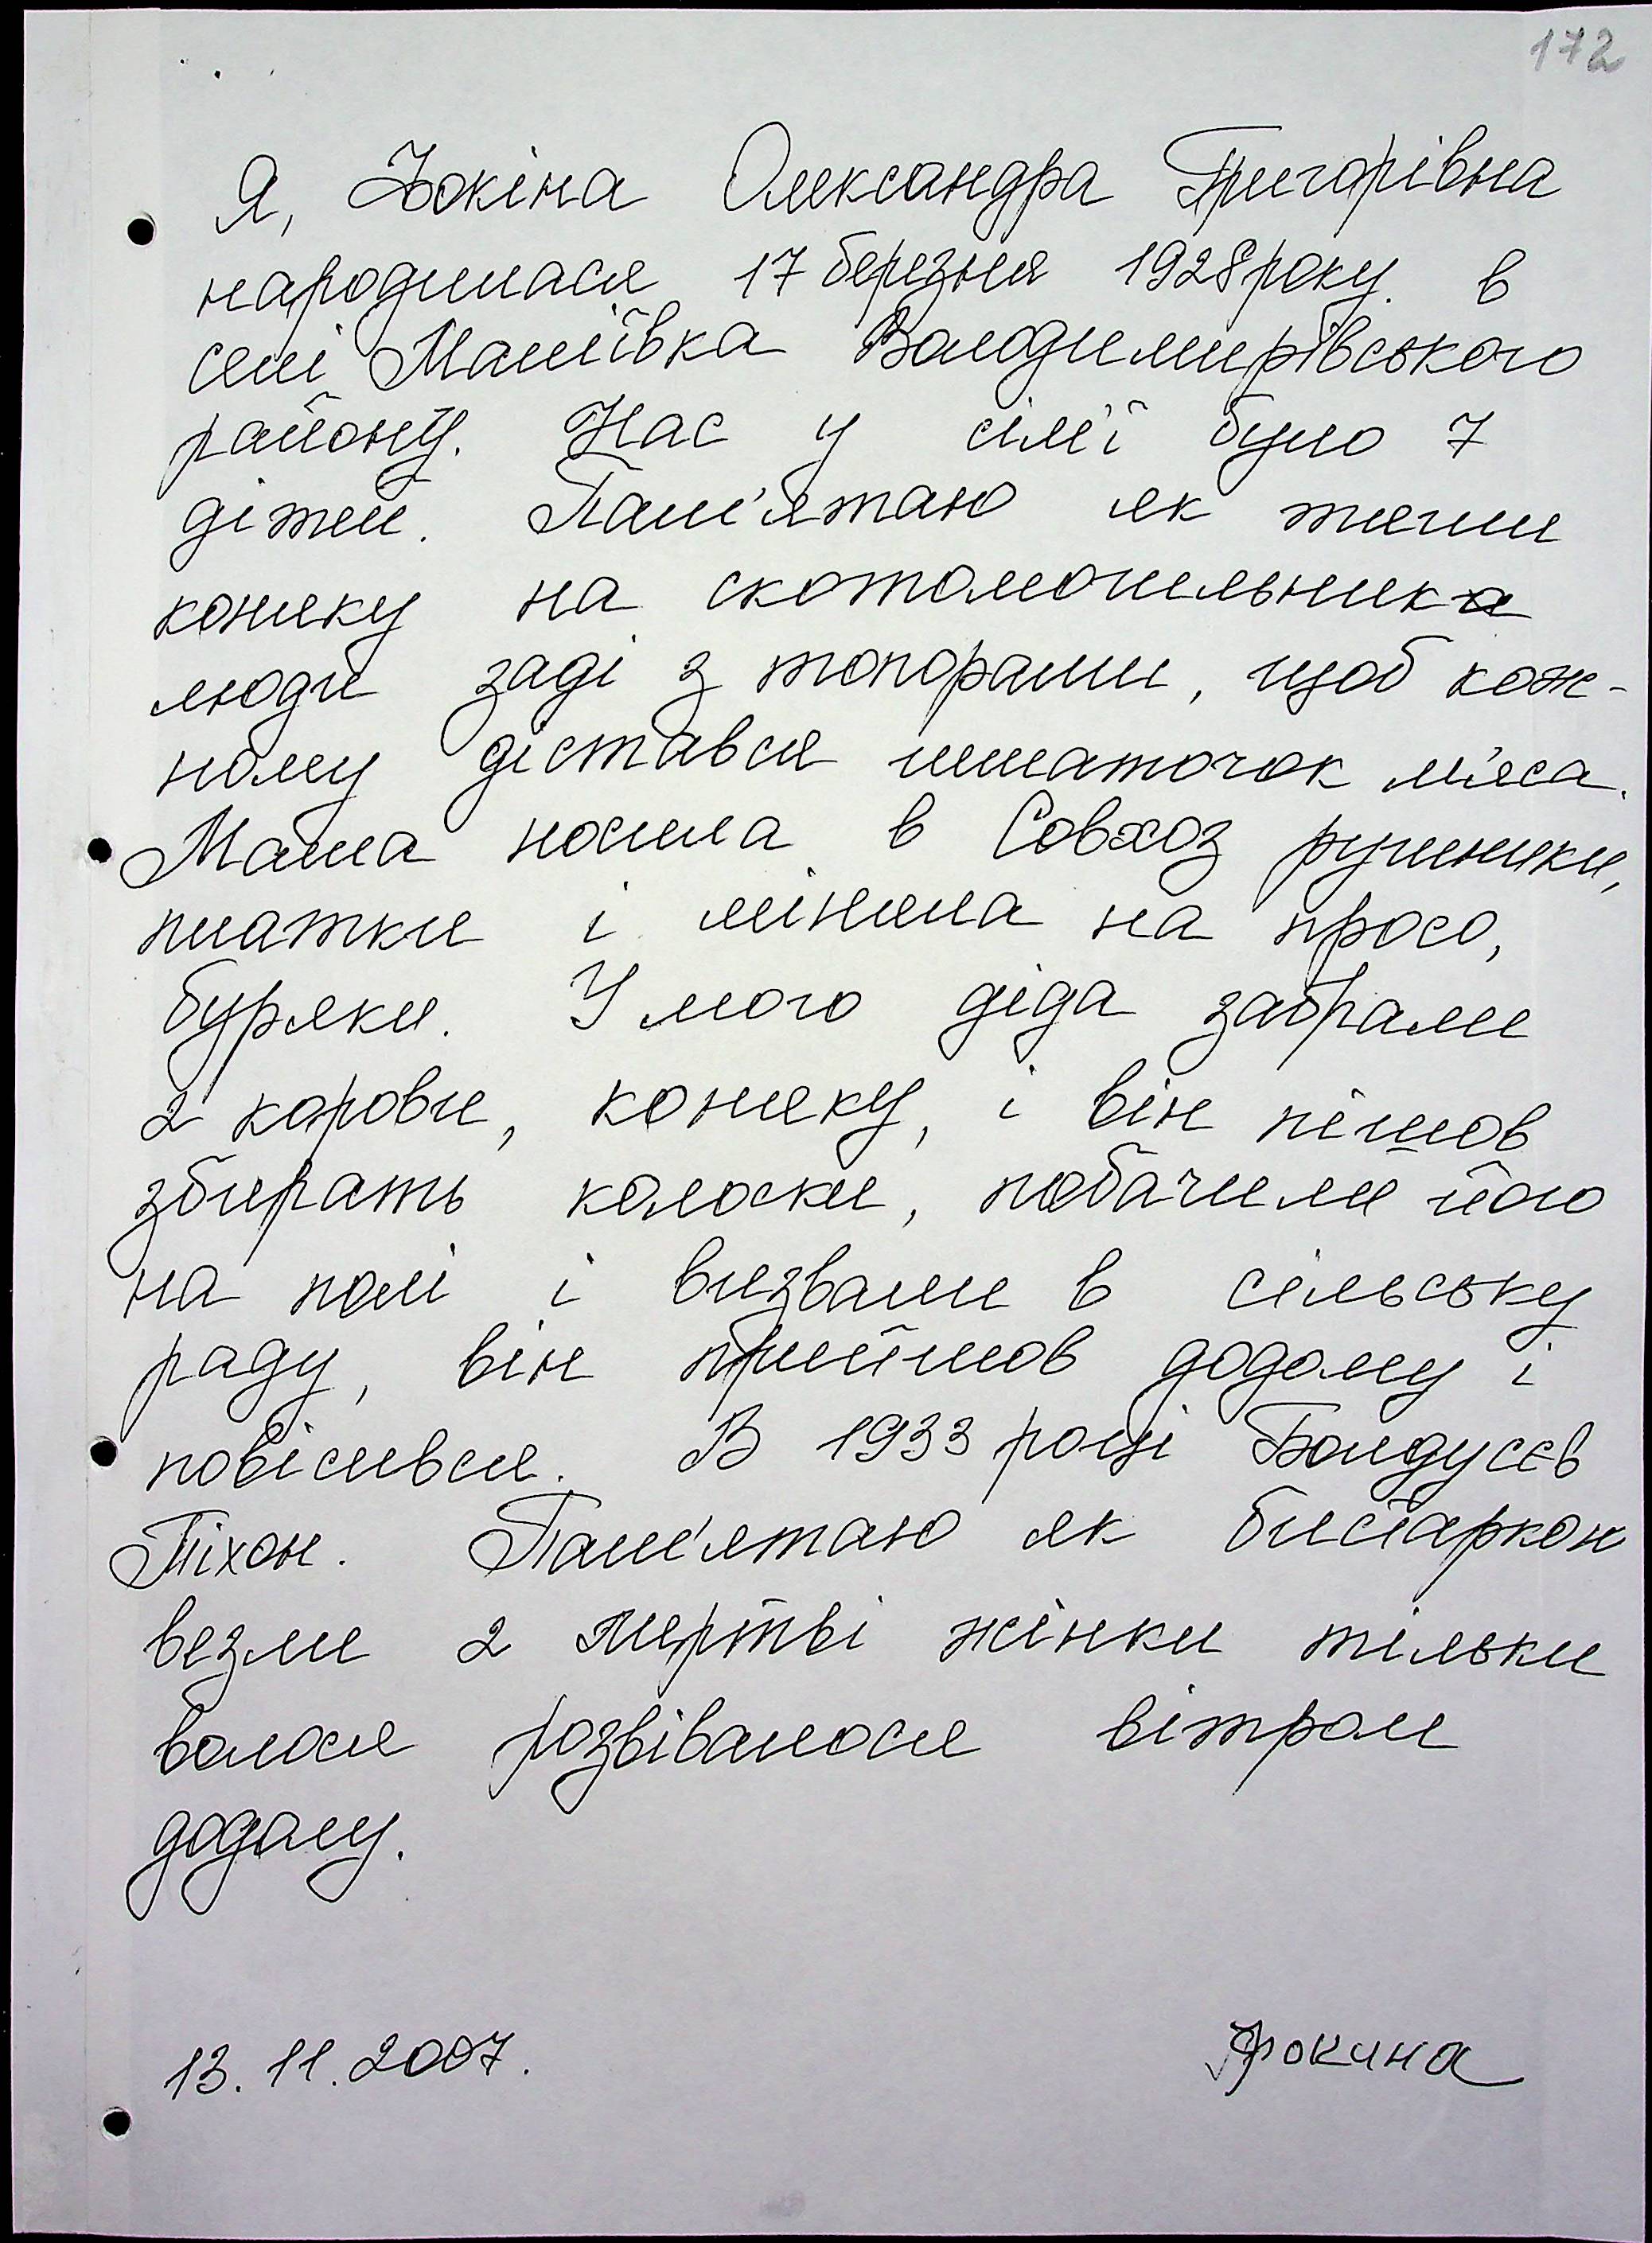 172
Я, Фокіна Олександра Григорівна
народилася 17 березня 1928 року. в
селі Маліївка Володимирівського
району. Нас у сілі'ї було 7
дітей. Пам'ятаю як тягли
коняку на скотомогильника
люди заді з топорами, щоб кож-
ному дістався шматочок м'яса.
Мама носила в Совхоз рушники,
платки і міняла на просо,
буряки. У мого діда забрали
2 корови, коняку, і він пішов
збирать колоски, побачили його
на полі і визвали в сільську
раду, він прийшов додому і
повісився. В 1933 році Болдусєв
Тіхон. Пам'ятаю як бистаркой
везли 2 мертві жінки тільки
волося розвівалося вітром
додолу.
13.11.2007.
Фокина